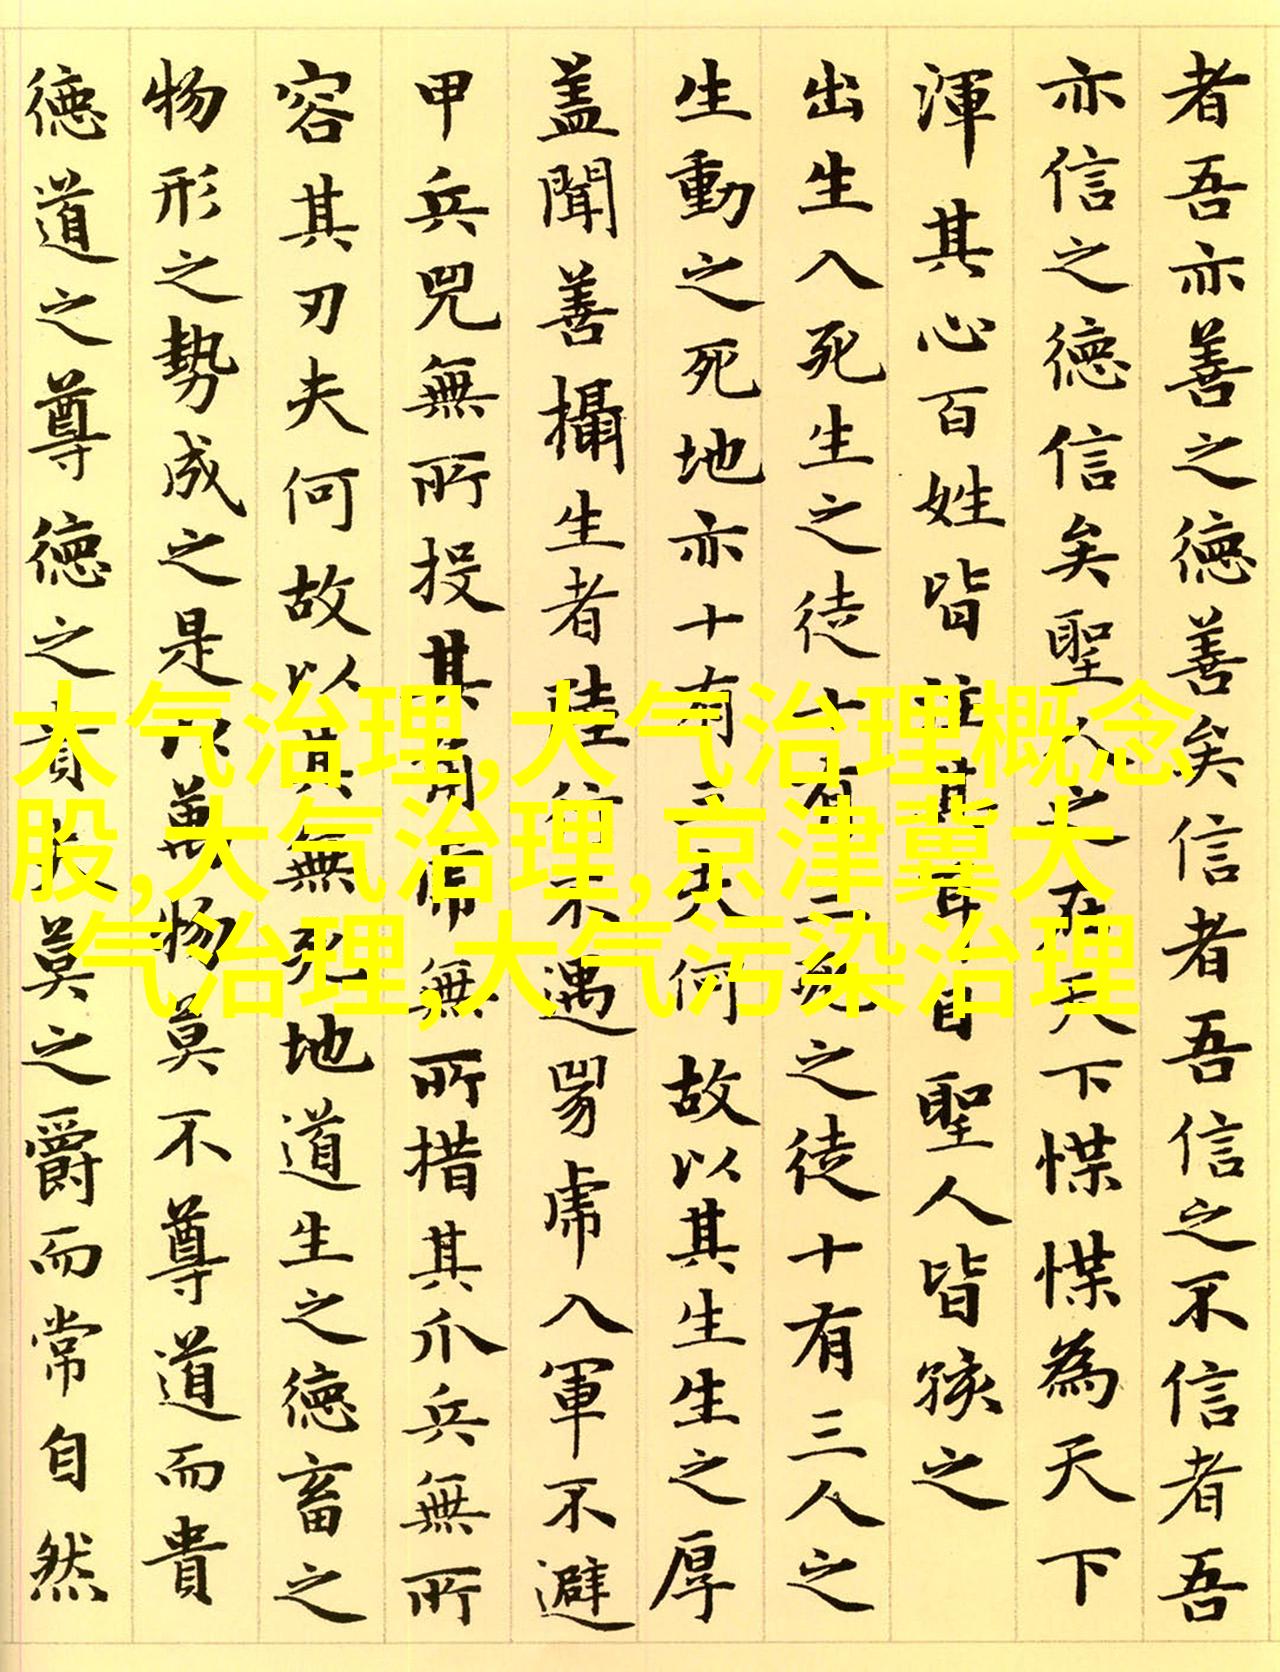 者吾亦善之德善矣信者吾信之不信者吾
亦信之德信矣聖人之在天下惵惵為天下
渾其心百姓皆注其耳目聖人皆孩之
出生入死生之徒十有三死之徒十有三人之
生動之死地亦十有三夫何故以其生生之厚
盖聞善攝生者陸行不遇兕虎入軍不避
甲兵兕無所投其角虎無所措其爪兵無所
容其刃夫何故以其無死地道生之德畜之
物形之勢成之是以萬物莫不尊道而貴
德道之尊德之貴夫莫之爵而常自然
大气治理,大气治理概念
股,大气治理,京津冀大
气治理,大气污染治理